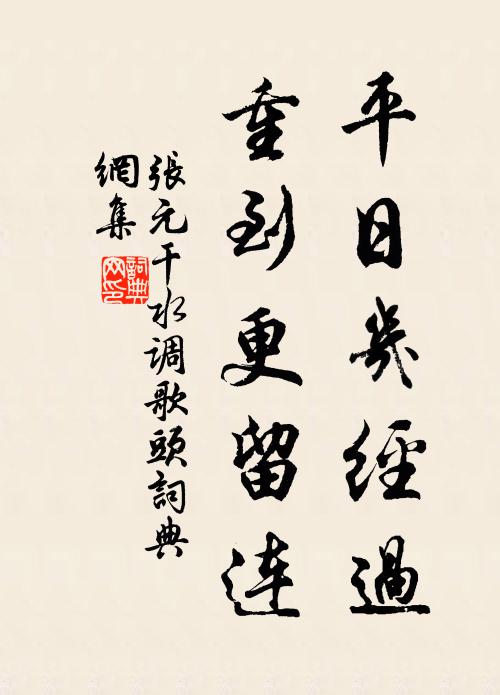 平日幾經過
重到更留連
張元干水调歌頭詞典
網集
詞典
网印